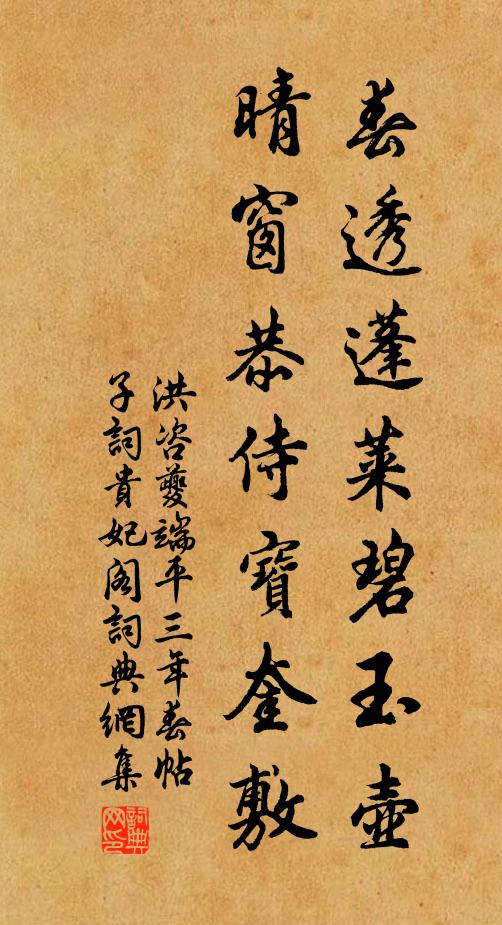 春透蓬萊碧玉壺
晴窗恭侍寶奎敷
洪咨夔端平三年春帖
子詞貴妃閣詞典網集
詞典網印